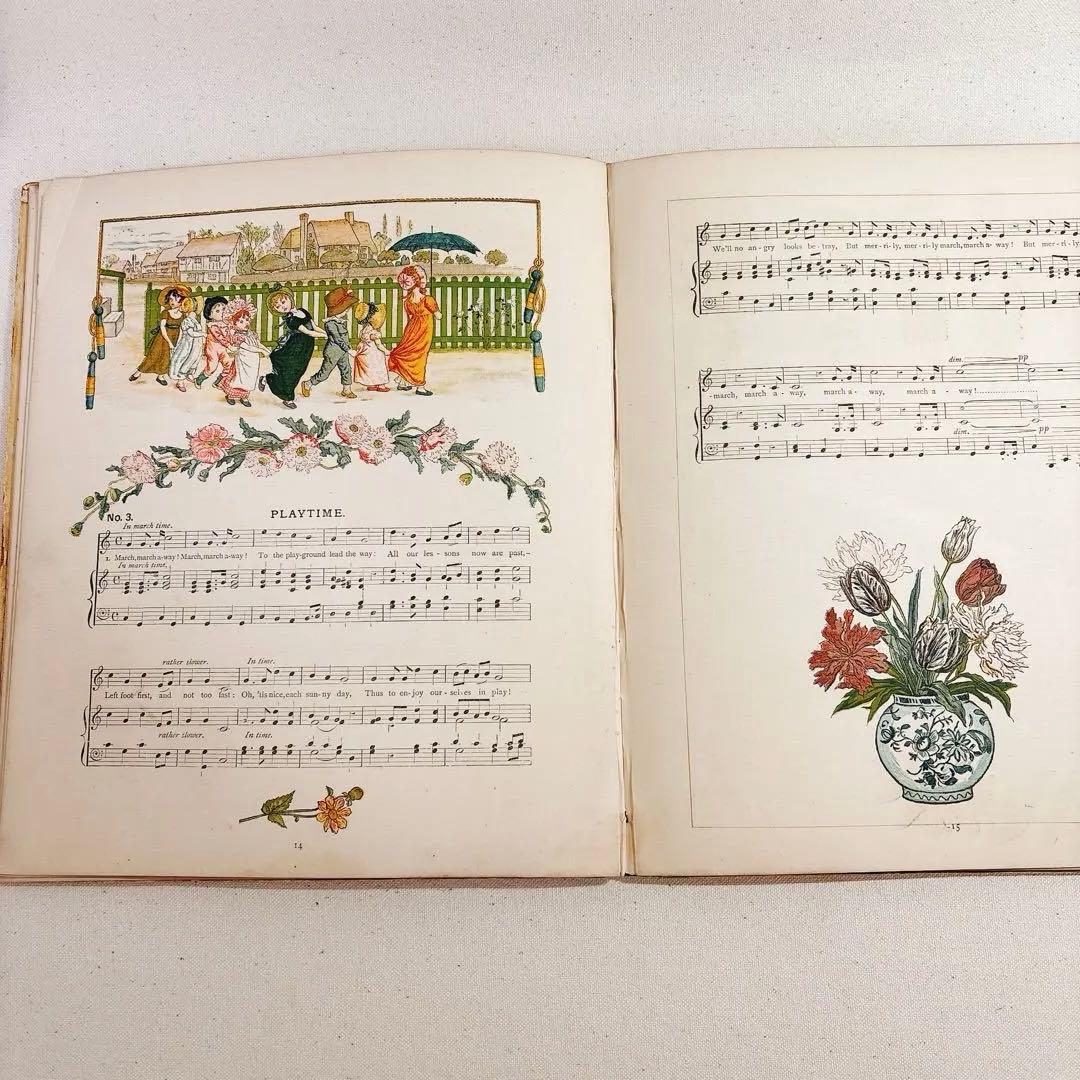 No. 3.
PLAYTIME.
In march time.
1. March, march a-way! March, march a-way! To the play-ground lead the way: All our les - sons now are past,-
In march time.
rather slower. In time.
Left foot first, and not too fast: Oh, 'tis nice, each sun-ny day, Thus to en-joy our - selves in play!
rather slower. In time.
14
We'll no an-gry looks be-tray, But mer-ri-ly, mer-ri-ly march, march a-way! But mer-ri-ly
dim. pp
-march, march a - way, march a - way, march a - way!
dim. pp
15